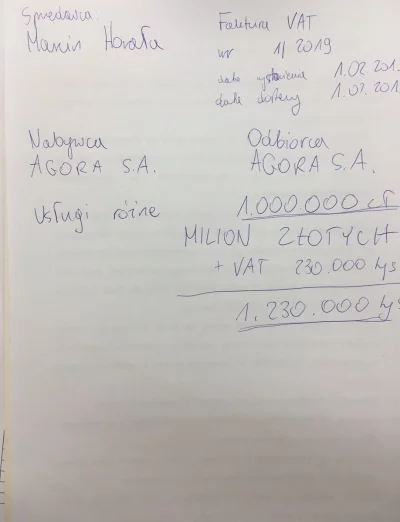 Sprzedawca:
Marcin Horała
Faktura VAT
nr 1/2019
data wystawienia 1.02.201
data dostawy 1.02.201
Nabywca
AGORA S.A.
Odbiorca
AGORA S.A.
Usługi różne
1.000.000 zł
MILION ZŁOTYCH
+ VAT 230.000 tys
1.230.000 tys